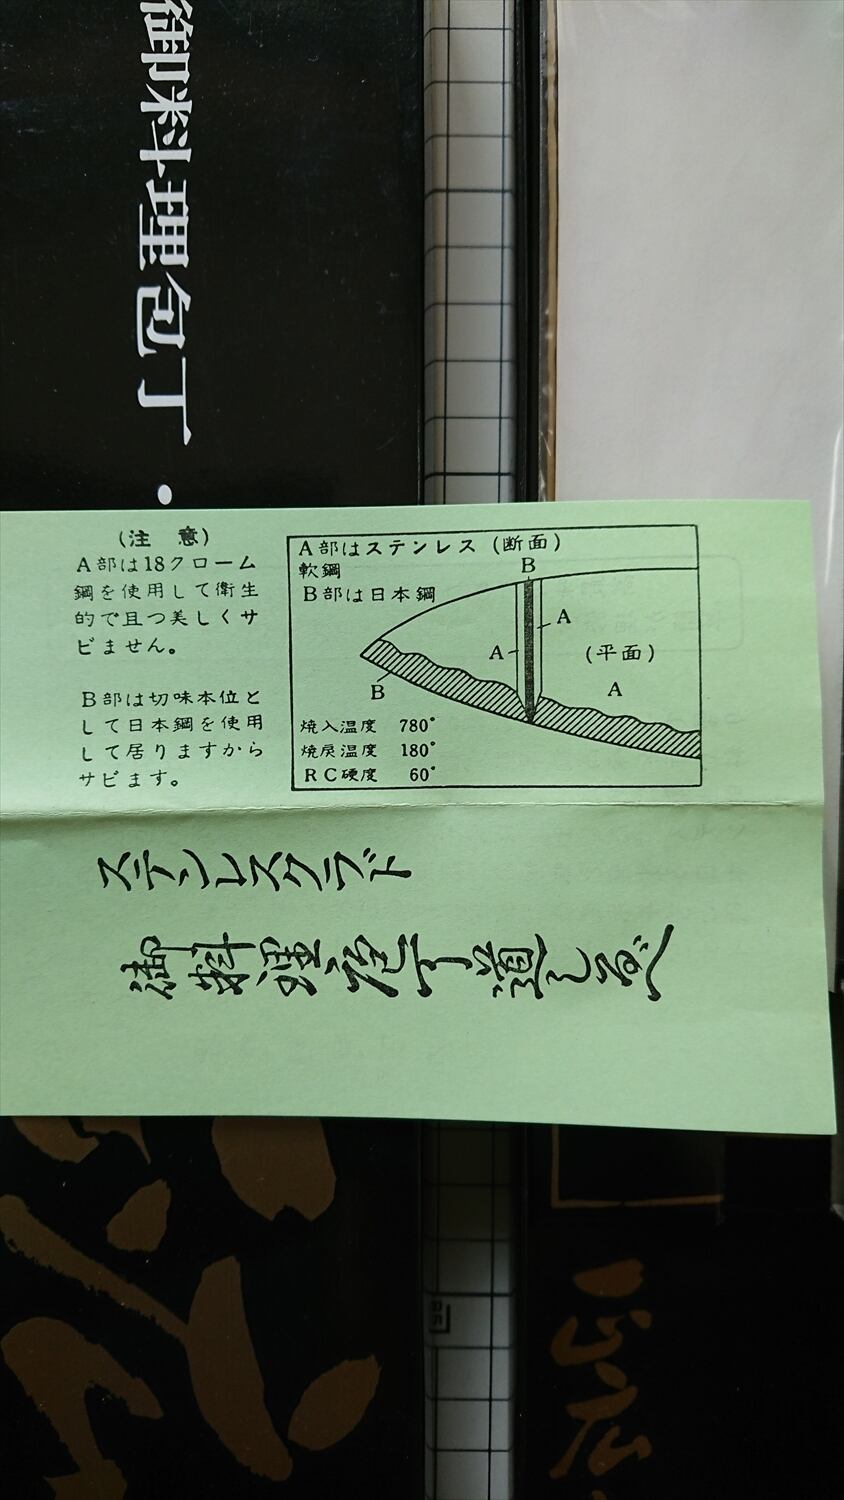 御料理包丁・
(注 意)
A部は18クローム
鋼を使用して衛生
的で且つ美しくサ
ビません。
B部は切味本位と
して日本鋼を使用
して居りますから
サビます。
A部はステンレス(断面)
軟鋼
B部は日本鋼
B
A
A
(平面)
A
B
焼入温度 780°
焼戻温度 180°
RC硬度 60°
ステンレスクラブト
御料理庖丁道しるべ
正広